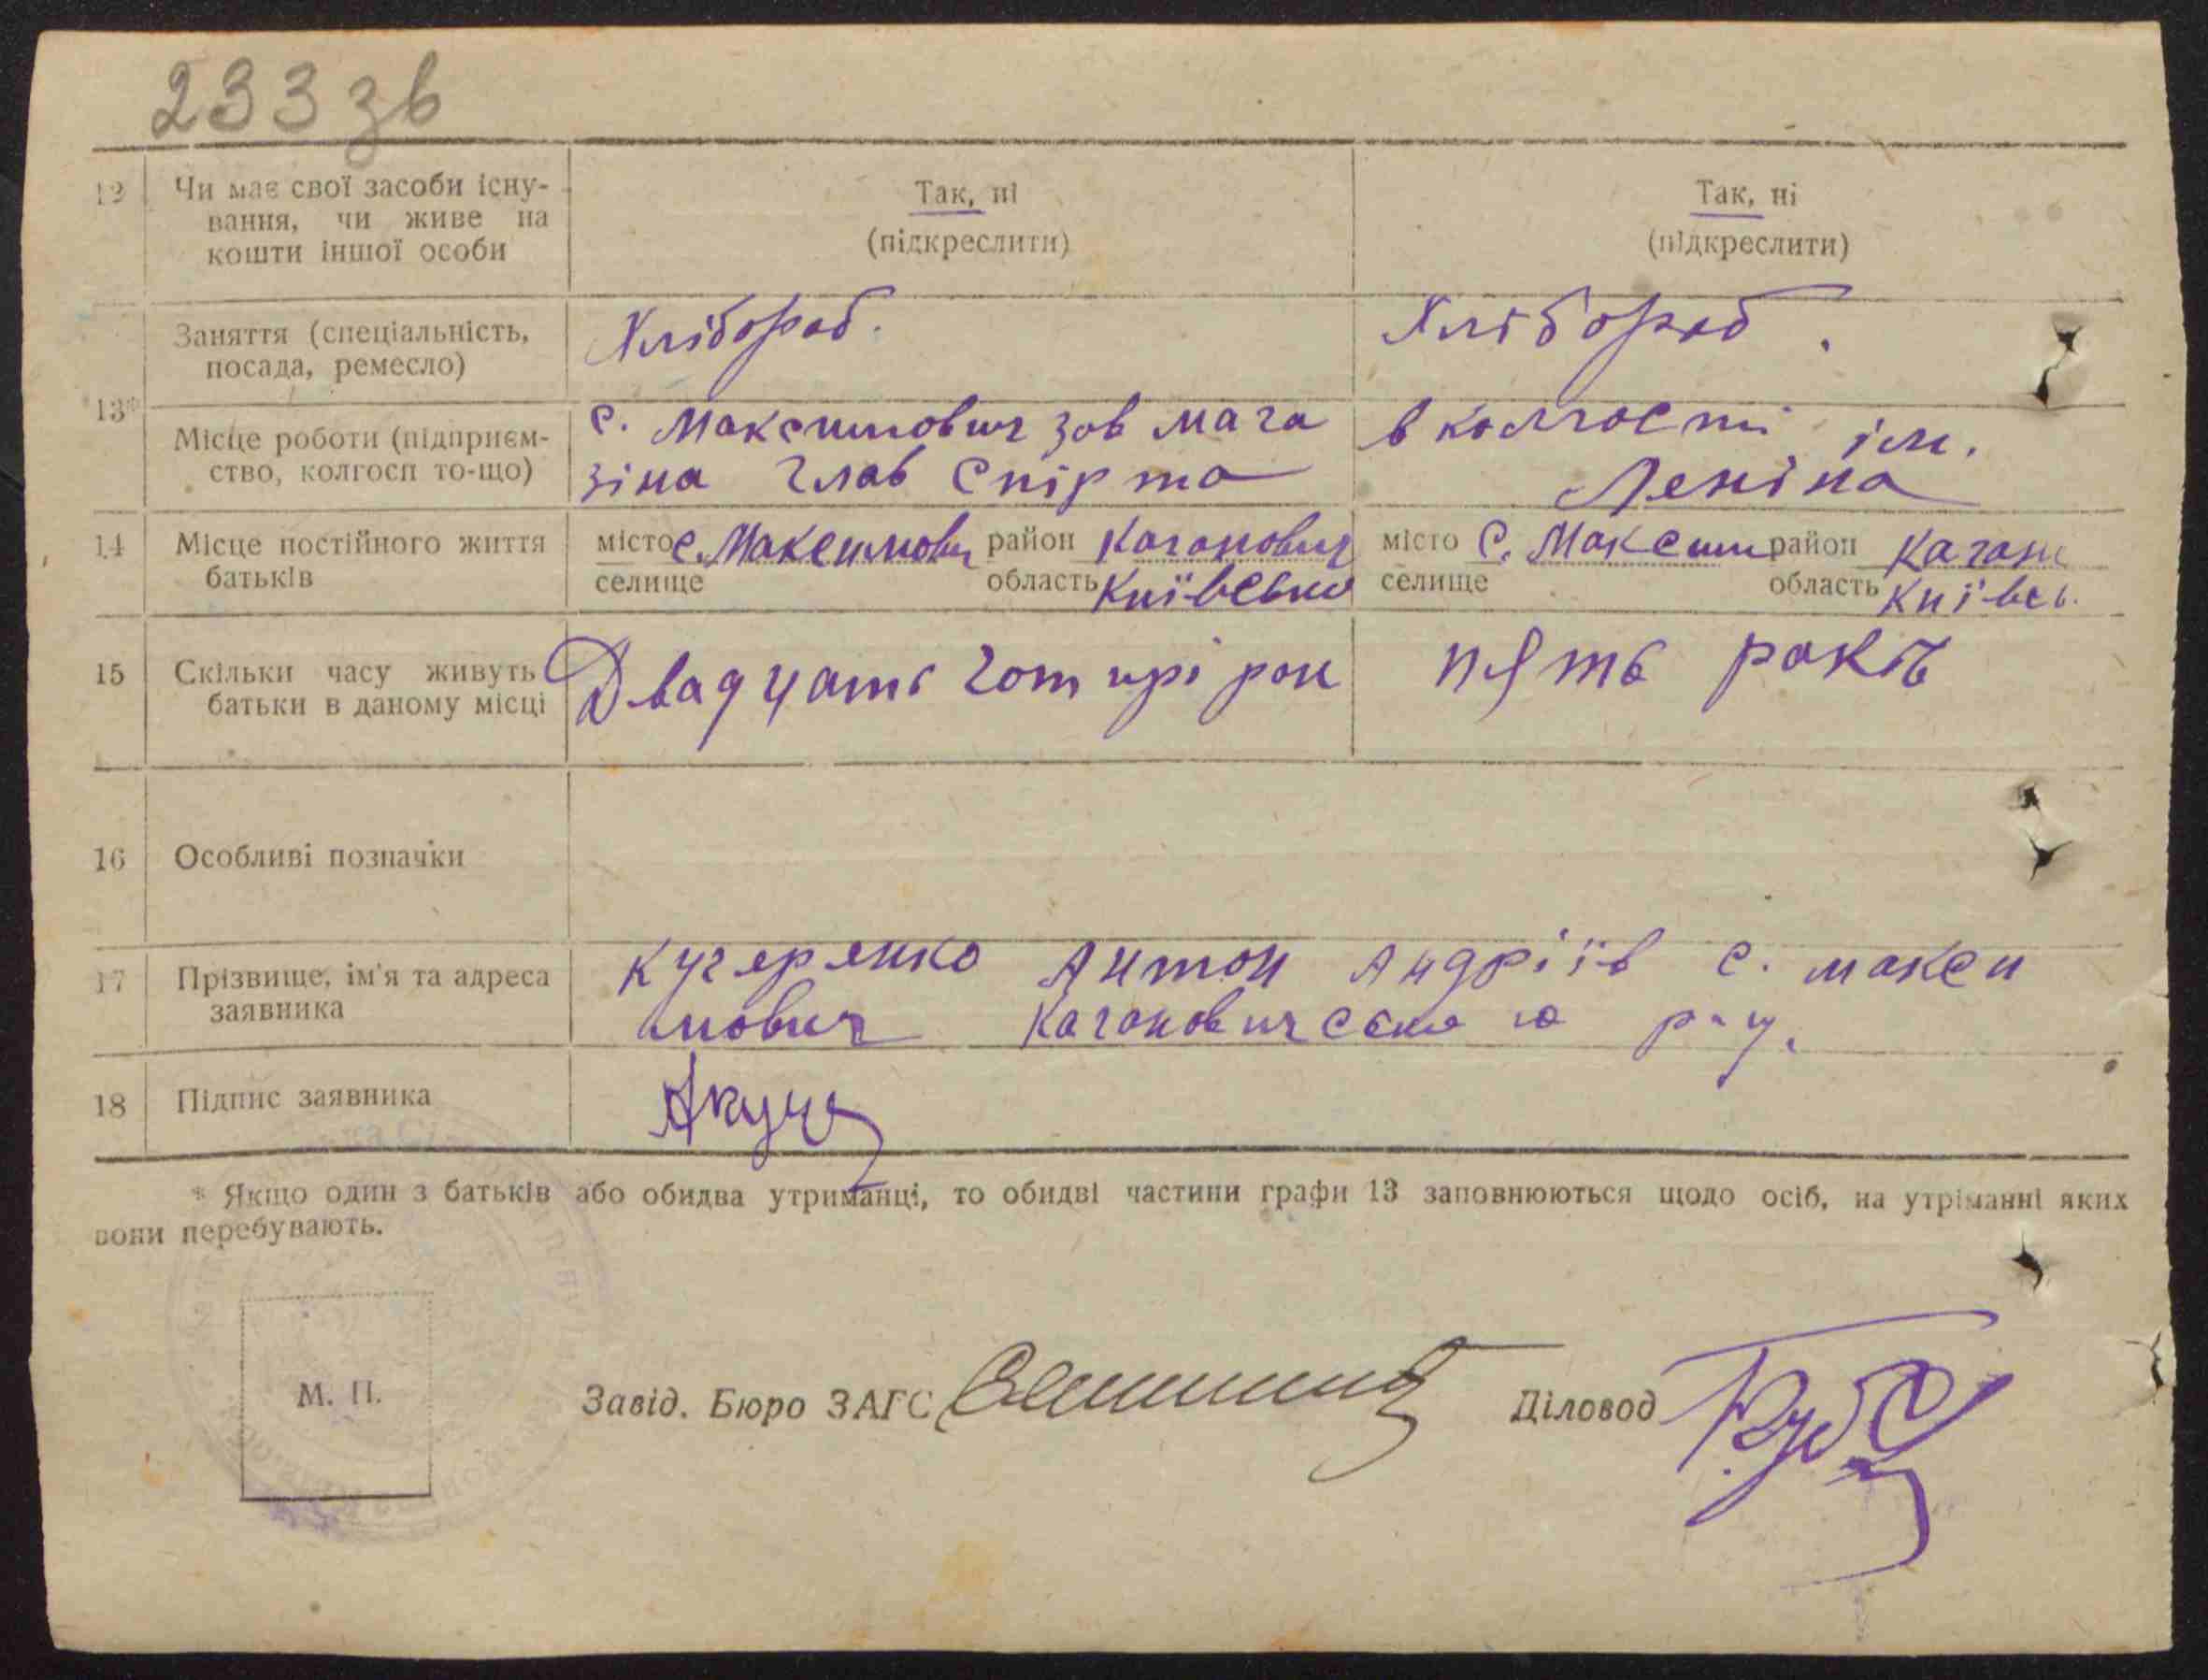 233 зв
12 Чи має свої засоби існу- Так, ні Так, ні
вання, чи живе на
кошти іншої особи (підкреслити) (підкреслити)
Заняття (спеціальність, Хлібороб. Хлібороб.
посада, ремесло)
13*
Місце роботи (підприєм- с. Максимович зав мага в колгоспі ім.
ство, колгосп то-що) зіна глав Спірта Леніна
14 Місце постійного життя місто с. Максимович район Каганович місто с. Максим район Каган
батьків селище область Київсько селище область Київсь.
15 Скільки часу живуть Двадцать чотирі рок пять рокіб
батьки в даному місці
16 Особливі позначки
17 Прізвище, ім'я та адреса Кучеренко Антон Андріїв с. макси
заявника мович Кагановичсько го р-у.
18 Підпис заявника Акуче
* Якщо один з батьків або обидва утриманці, то обидві частини графи 13 заповнюються щодо осіб, на утріманні яких
вони перебувають.
М. П. Завід. Бюро ЗАГС Діловод